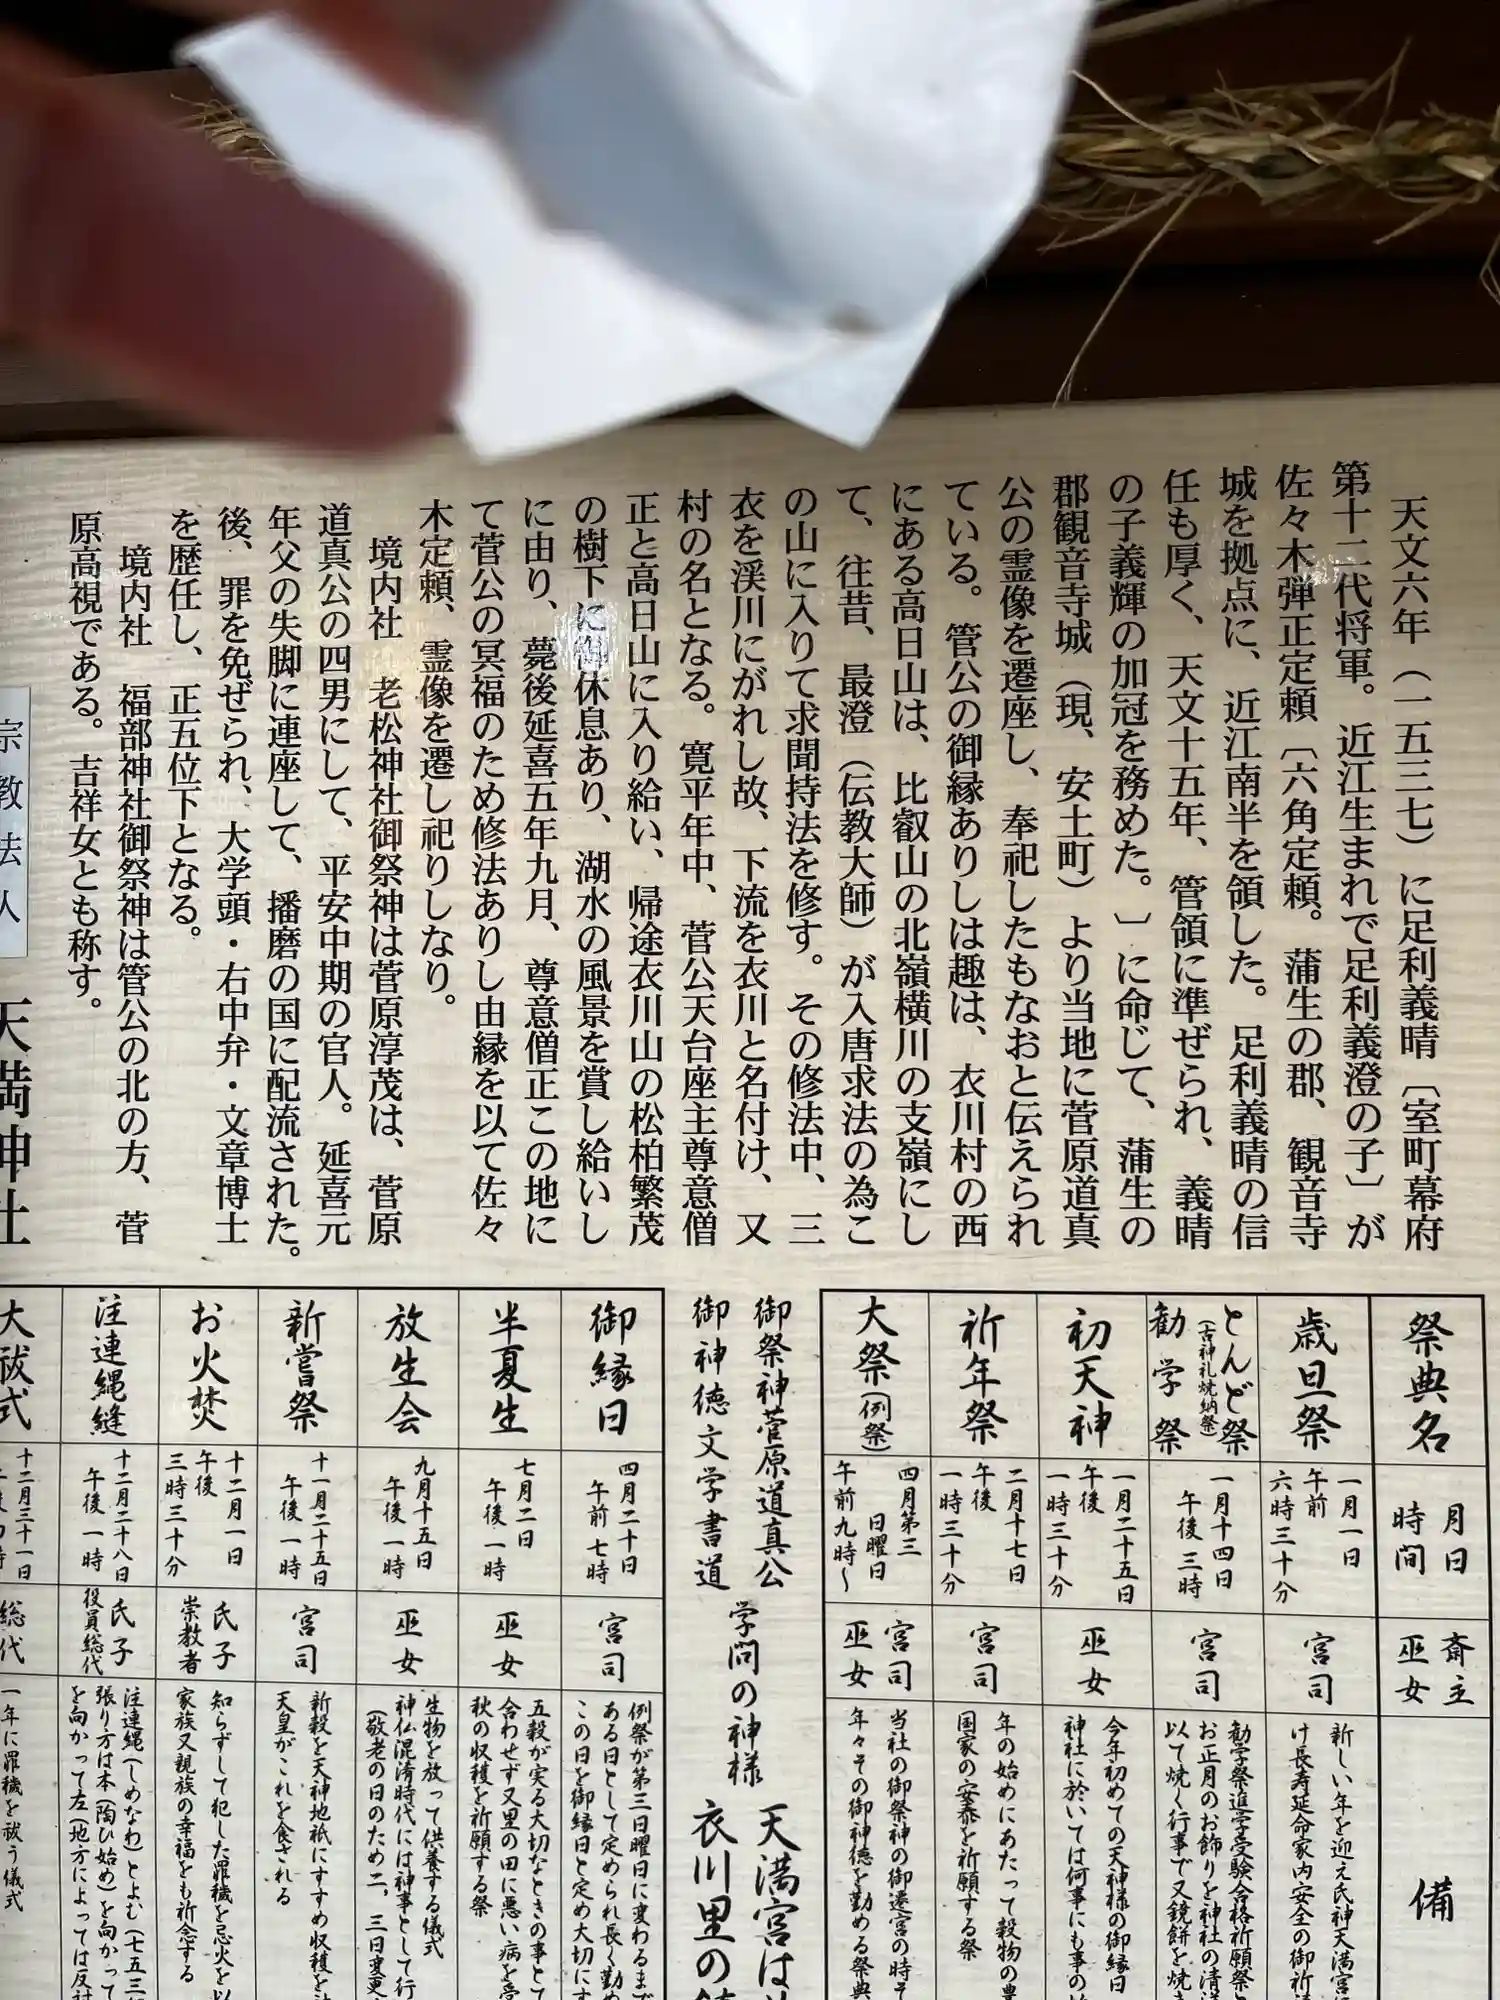 天文六年（一五三七）に足利義晴〔室町幕府
第十二代将軍。近江生まれで足利義澄の子〕が
佐々木弾正定頼〔六角定頼。蒲生の郡、観音寺
城を拠点に、近江南半を領した。足利義晴の信
任も厚く、天文十五年、管領に準ぜられ、義晴
の子義輝の加冠を務めた。〕に命じて、蒲生の
郡観音寺城（現、安土町）より当地に菅原道真
公の霊像を遷座し、奉祀したもなおと伝えられ
ている。管公の御縁ありしは趣は、衣川村の西
にある高日山は、比叡山の北嶺横川の支嶺にし
て、往昔、最澄（伝教大師）が入唐求法の為こ
の山に入りて求聞持法を修す。その修法中、三
衣を渓川にがれし故、下流を衣川と名付け、又
村の名となる。寛平年中、菅公天台座主尊意僧
正と高日山に入り給い、帰途衣川山の松柏繁茂
の樹下に御休息あり、湖水の風景を賞し給いし
に由り、薨後延喜五年九月、尊意僧正この地に
て菅公の冥福のため修法ありし由縁を以て佐々
木定頼、霊像を遷し祀りしなり。
境内社　老松神社御祭神は菅原淳茂は、菅原
道真公の四男にして、平安中期の官人。延喜元
年父の失脚に連座して、播磨の国に配流された。
後、罪を免ぜられ、大学頭・右中弁・文章博士
を歴任し、正五位下となる。
境内社　福部神社御祭神は管公の北の方、菅
原高視である。吉祥女とも称す。
宗教法人
天満神社
祭典名
月日
時間
斎主
巫女
備
歳旦祭
一月一日
午前
六時三十分
宮司
新しい年を迎え氏神天満宮に
け長寿延命家内安全の御祈
とんど祭
（古神札焼納祭）
勧学祭
一月十四日
午後三時
宮司
勧学祭進学受験合格祈願祭と
お正月のお飾りを神社の清
以て焼く行事で又鏡餅を焼
初天神
一月二十五日
午後
一時三十分
巫女
今年初めての天神様の御縁日
神社に於いては何事にも事の
祈年祭
二月十七日
午後
一時三十分
宮司
年の始めにあたって穀物の豊
国家の安泰を祈願する祭
大祭（例祭）
四月第三
日曜日
午前九時〜
宮司
巫女
当社の御祭神の御遷宮の時そ
年々その御神徳を勤める祭典
御祭神菅原道真公
御神徳文学書道
学問の神様
天満宮は
衣川里の
御縁日
四月二十日
午前七時
宮司
例祭が第三日曜日に変わるまで
ある日として定められ長く勤め
この日を御縁日と定め大切にす
半夏生
七月二日
午後一時
巫女
五穀が実る大切なときの事とて
合わせず又里の田に悪い病を受
秋の収穫を祈願する祭
放生会
九月十五日
午後一時
巫女
生物を放って供養する儀式
神仏混淆時代には神事として行
（敬老の日のため二、三日変更
新嘗祭
十一月二十五日
午後一時
宮司
新穀を天神地祇にすすめ収穫を
天皇がこれを食される
お火焚
十二月一日
午後
三時三十分
氏子
崇教者
知らずして犯した罪穢を忌火を以
家族又親族の幸福をも祈念する
注連縄縫
十二月二十八日
午後一時
氏子
役員総代
注連縄（しめなわ）とよむ（七五三
張り方は本（陶ひ始め）を向かって
を向かって左（地方によっては反対
大祓式
十二月三十一日
総代
一年に罪穢を祓う儀式